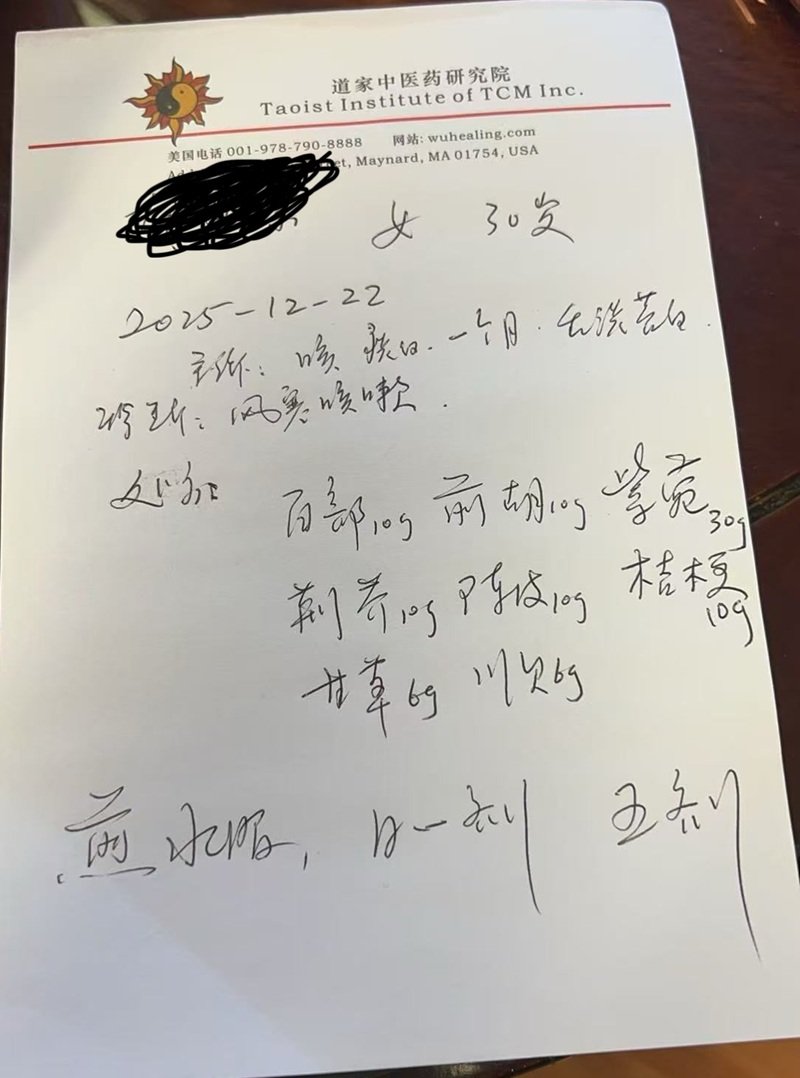 道家中医药研究院
Taoist Institute of TCM Inc.
美国电话 001-978-790-8888 网站: wuhealing.com
et, Maynard, MA 01754, USA
女 30岁
2025-12-22
主诉: 咳 痰白. 一个月. 舌淡苔白.
诊断: 风寒咳嗽.
处方:
百部10g 前胡10g 紫菀30g
荆芥10g 陈皮10g 桔梗10g
甘草6g 川贝6g
煎水服, 日一剂 五剂